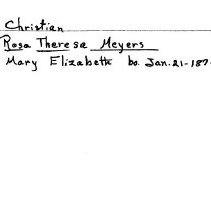 Christian
Rosa Theresa Meyers
Mary Elizabeth bo. Jan. 21-187